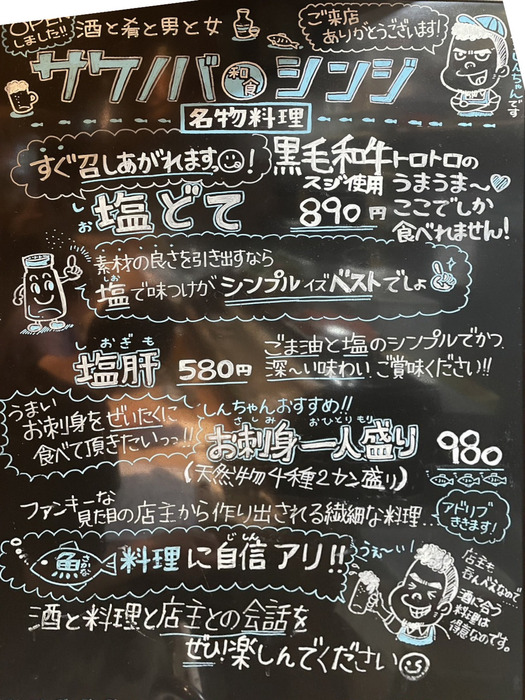 OPEN
しました!!
酒と肴と男と女
ご来店
ありがとうございます!
サケノバ 和食 シンジ
しんちゃんです
名物料理
すぐ召しあがれますっ!
黒毛和牛トロトロの
スジ使用 うまうま〜♡
しお
塩どて 890円
ここでしか
食べれません!
素材の良さを引き出すなら
しお
塩で味つけが シンプルイズベストでしょ
しおぎも
塩肝 580円
ごま油と塩のシンプルでかつ、
深〜い味わい、ご賞味ください!!
うまい
お刺身をぜいたくに
食べて頂きたいっっ!!
しんちゃんおすすめ!!
さしみ おひとりもり
お刺身一人盛り 980
(天然物4種2カン盛り)
ファンキーな
見た目の店主から作り出される繊細な料理...
アドリブ
ききます!
魚 さかな 料理に自信アリ!!
じしん
うぇ〜い!
店主も
呑んべえなので...
酒に合う
料理は
得意なのです。
酒と料理と店主との会話を
ぜひ!楽しんでください